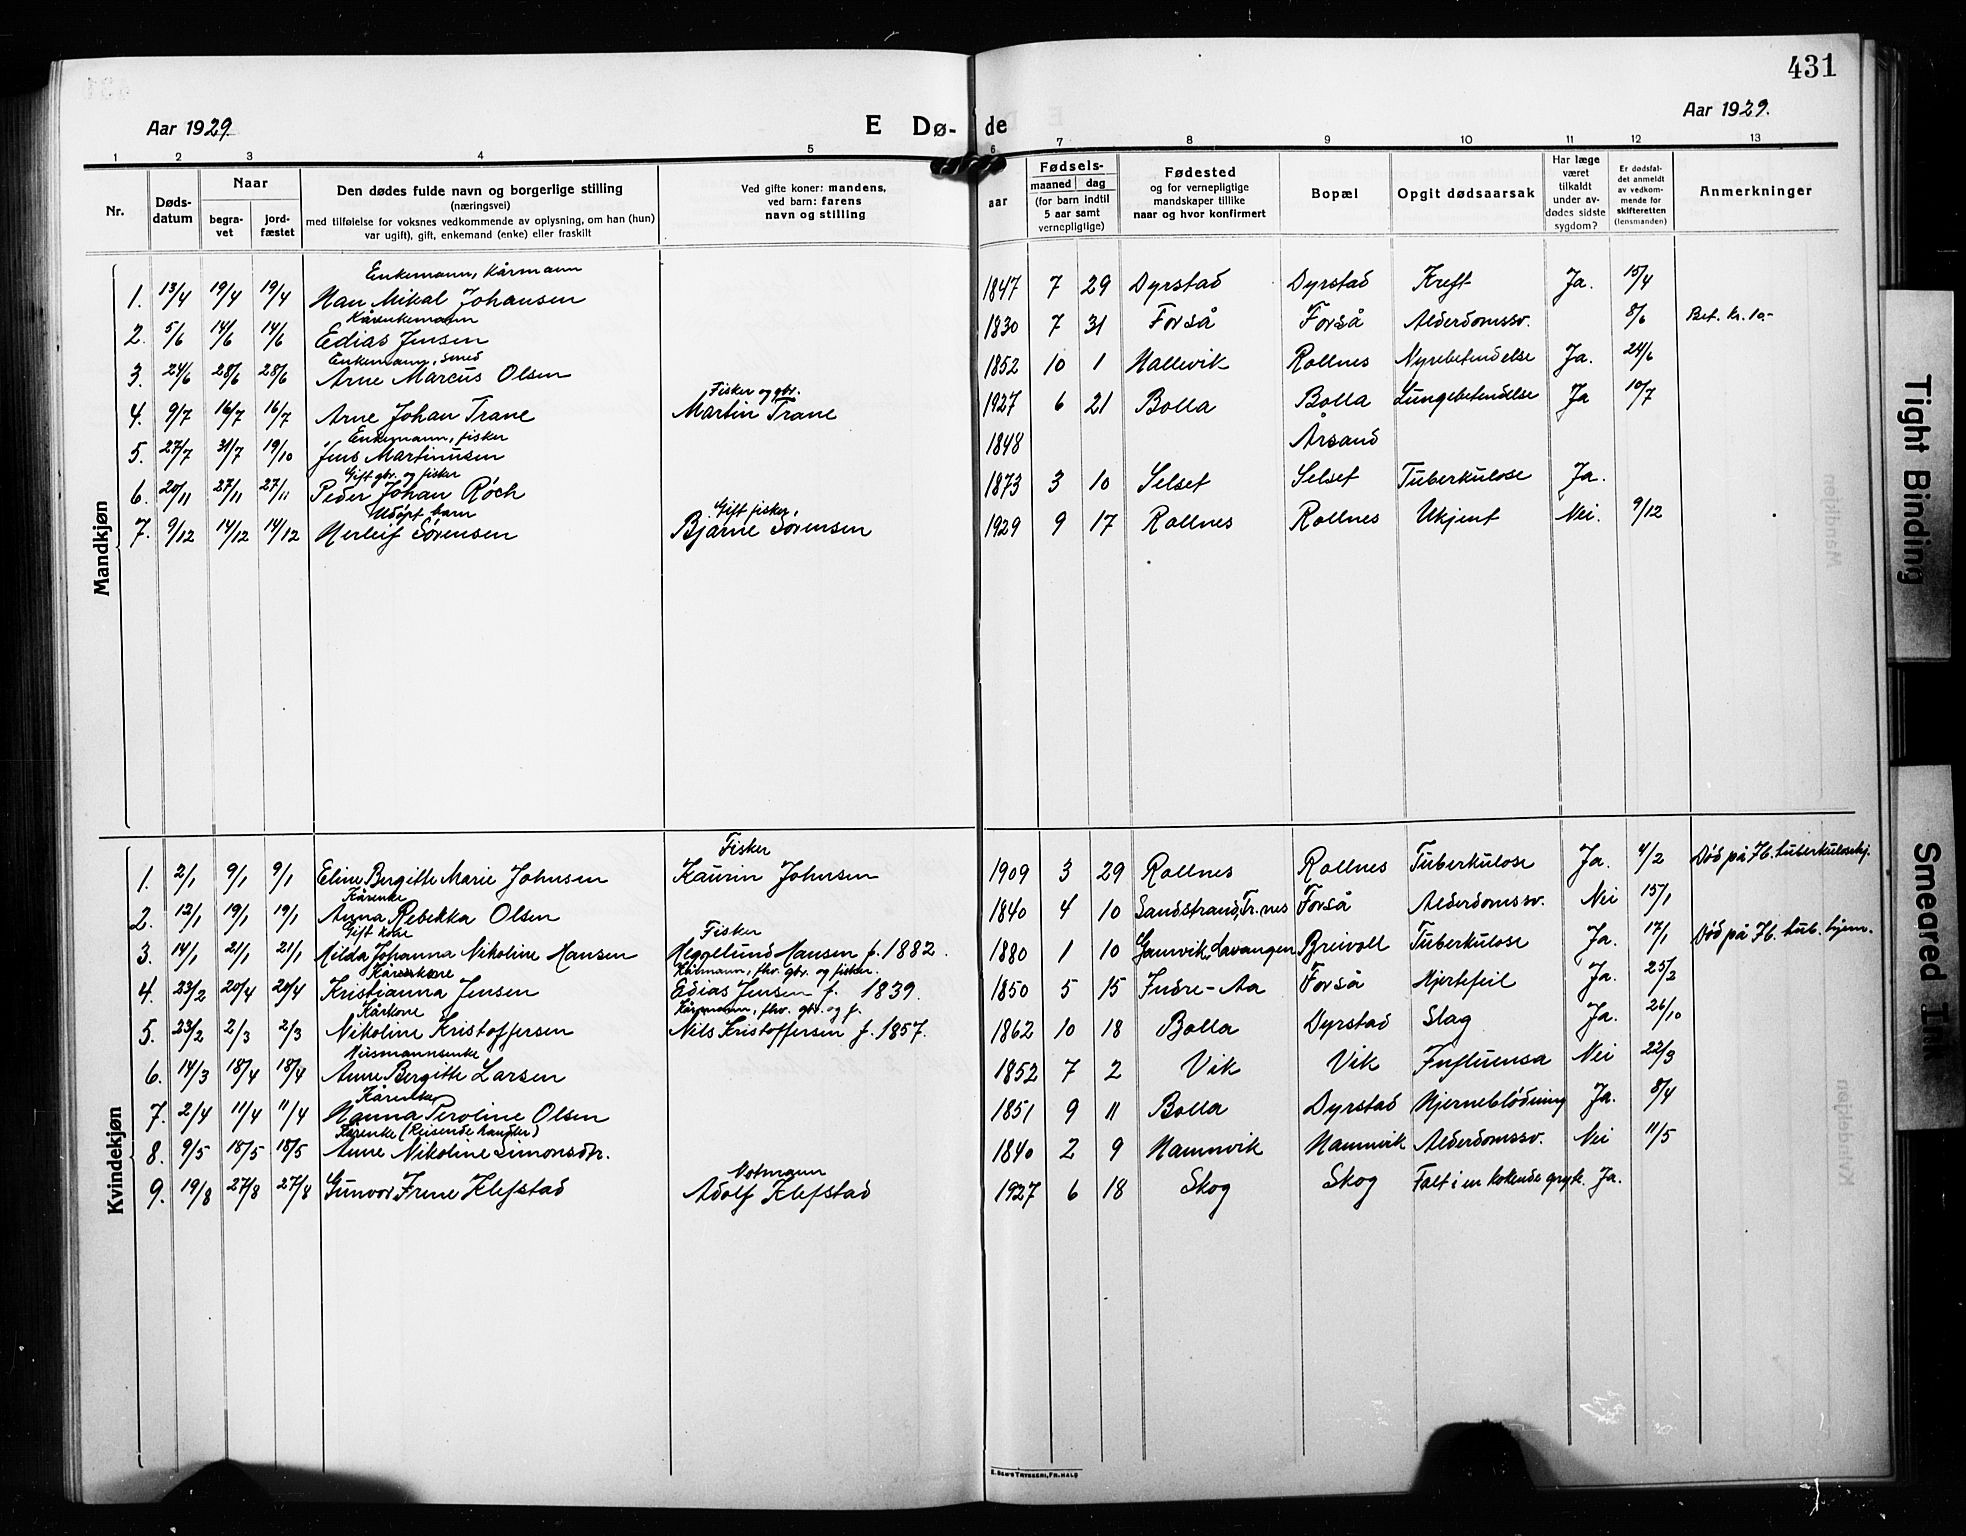 431
Aar 1929.
E Dø-
de
Aar 1929.
1 2 3 4 5 6 7 8 9 10 11 12 13
Nr.
Døds-
datum
Naar
begra-
vet
jord-
fæstet
Den dødes fulde navn og borgerlige stilling
(næringsvei)
med tilføielse for voksnes vedkommende av oplysning, om han (hun)
var ugift), gift, enkemand (enke) eller fraskilt
Ved gifte koner: mandens,
ved barn: farens
navn og stilling
aar
Fødsels-
maaned dag
(for barn indtil
5 aar samt
vernepligtige)
Fødested
og for vernepligtige
mandskaper tillike
naar og hvor konfirmert
Bopæl
Opgit dødsaarsak
Har læge
været
tilkaldt
under av-
dødes sidste
sygdom?
Er dødsfal-
det anmeldt
av vedkom-
mende for
skifteretten
(lensmanden)
Anmerkninger
Mandkjøn
Enkemann, kårmann
1. 13/4 19/4 19/4 Han Mikal Johansen 1847 7 29 Dyrstad Dyrstad Kreft Ja. 15/4
Kårenkemann
2. 5/6 14/6 14/6 Edias Jensen 1830 7 31 Forså Forså Alderdomssv. 8/6 Bet. kr. 10.-
Enkemann, smed
3. 24/6 28/6 28/6 Arne Marcus Olsen 1852 10 1 Hallevik Rollnes Nyrebetendelse Ja. 24/6
Fisker og gbr.
4. 9/7 16/7 16/7 Arne Johan Trane Martin Trane 1927 6 21 Bolla Bolla Lungebetendelse Ja 10/7
Enkemann, fisker
5. 27/7 31/7 19/10 Jens Martinusen 1848 Årsand
Gift gbr. og fisker
6. 20/11 27/11 27/11 Peder Johan Röch 1873 3 10 Selset Selset Tuberkulose Ja.
Udöpt barn Gift fisker,
7. 9/12 14/12 14/12 Herleif Sørensen Bjarne Sørensen 1929 9 17 Rollnes Rollnes Ukjent Nei. 9/12
Kvindekjøn
Fisker
1. 2/1 9/1 9/1 Eline Bergitte Marie Johnsen Kaurin Johnsen 1909 3 29 Rollnes Rollnes Tuberkulose Ja. 4/2 Död på Hb. tuberkulosehj.
Kårenke
2. 12/1 19/1 19/1 Anna Rebekka Olsen 1840 4 10 Sandstrand, Tr.nes Forså Alderdomssv. Nei 15/1
Gift kone Fisker
3. 14/1 21/1 21/1 Hilda Johanna Nikoline Hansen Heggelund Hansen f. 1882. 1880 1 10 Gamvik, Lavangen Breivoll Tuberkulose Ja. 17/1 Död på Hb. tub. hjem.
Kårmann, fhv. gbr. og fisker.
4. 23/2 20/4 20/4 Kristianna Jensen Edias Jensen f. 1839. 1850 5 15 Indre-Aa Forså Hjertefeil Ja. 25/2
Kårkone Kårmann, fhv. gbr. og f.
5. 23/2 2/3 2/3 Nikoline Kristoffersen Nils Kristoffersen f. 1857. 1862 10 18 Bolla Dyrstad Slag Ja. 26/10
Husmannsenke
6. 14/3 18/4 18/4 Anne Bergitte Larsen 1852 7 2 Vik Vik Influensa Nei 22/3
Kårenke
7. 2/4 11/4 11/4 Hanna Peroline Olsen 1851 9 11 Bolla Dyrstad Hjerneblödning Ja. 8/4
Kårenke (Reisende handler)
8. 9/5 18/5 18/5 Anne Nikoline Simonsdtr. 1840 2 9 Hamnvik Hamnvik Alderdomssv. Nei 11/5
Notmann
9. 19/8 27/8 27/8 Gunvor Irene Klefstad Adolf Klefstad 1927 6 18 Skog Skog Falt i en kokende gryte. Ja.
E. SEM'S TRYKKERI, FR.HALD
Tight Binding
Smeared Ink